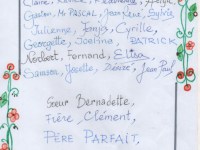 Gaston, Mr PASCAL, Jean René, Sylvia
Julienne, Cyrille,
Georgette, Joalina, PATRICK
Norbert, Fernand, Elisa
Samson, Josette, Désiré, Jean Paul
Sœur Bernadette,
Frère Clément,
PÈRE PARFAIT,